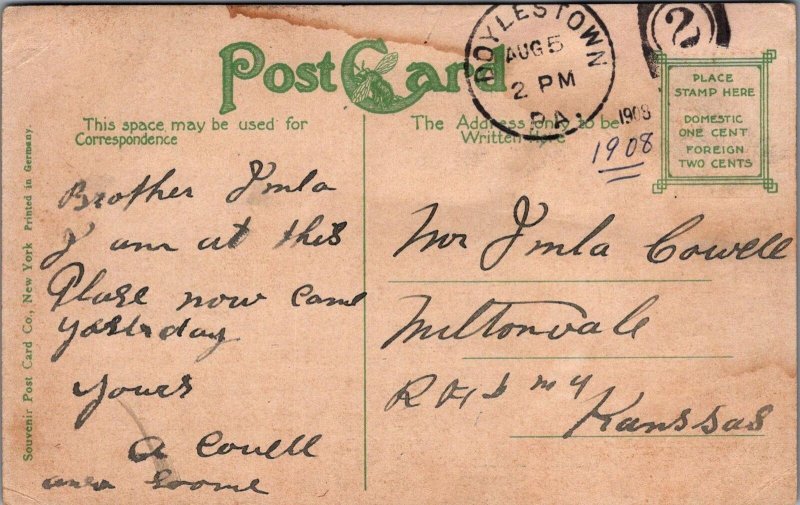 Post Card
DOYLESTOWN
AUG 5
2 PM
PA.
1908
2
PLACE
STAMP HERE
DOMESTIC
ONE CENT
FOREIGN
TWO CENTS
This space may be used for
Correspondence
The Address only to be
Written Here
1908
Brother Imla
I am at this
Plase now came
yastrday
yours
A Cowell
Mr Imla Cowell
Miltonvale
Kanssas
Souvenir Post Card Co., New York Printed in Germany.